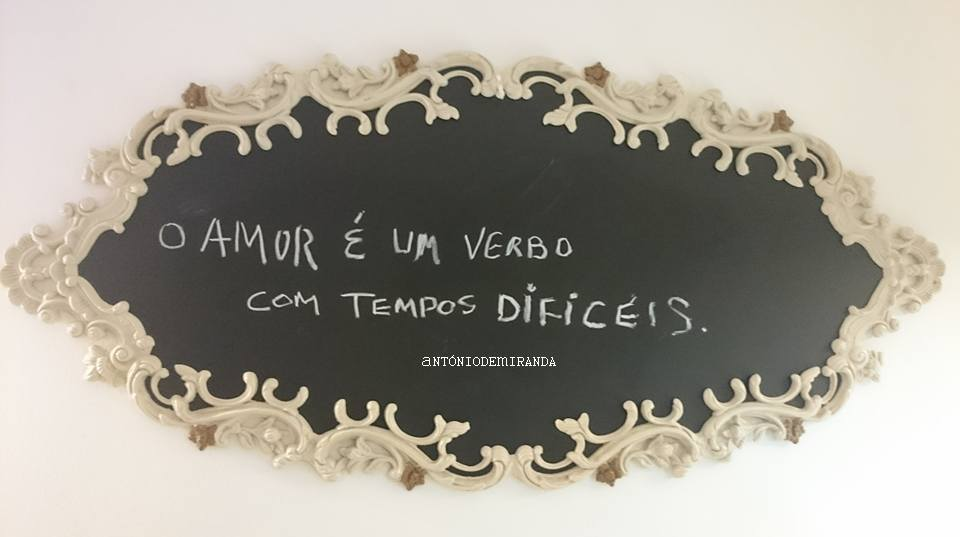 O AMOR É UM VERBO
COM TEMPOS DIFICÉIS.
aNTÓNIODEMIRANDA